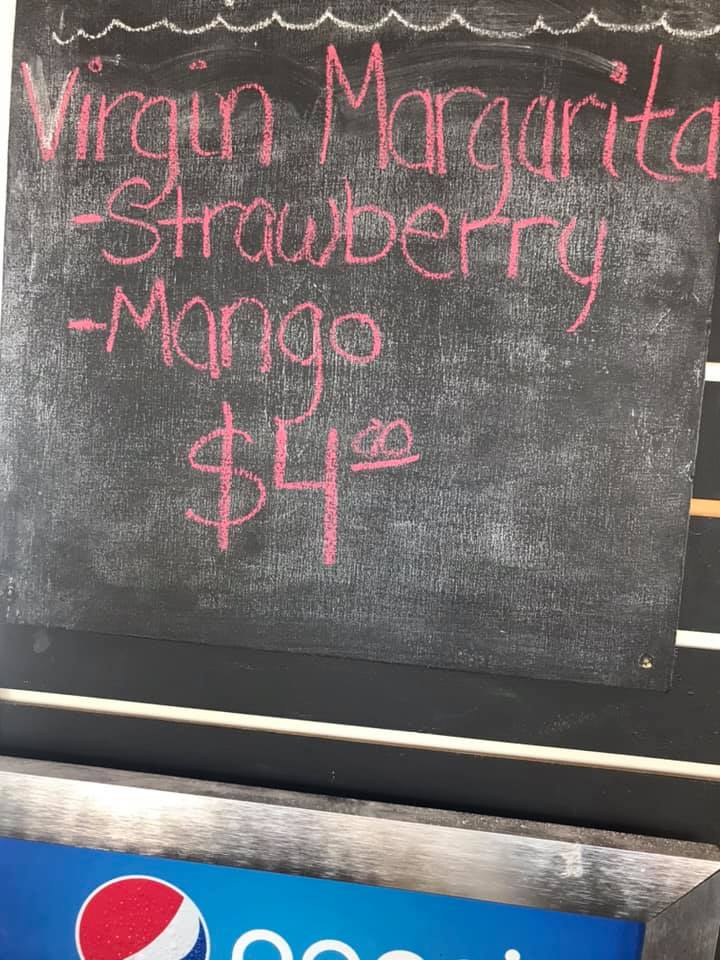 Virgin Margarita
-Strawberry
-Mango
$4 00
pepsi